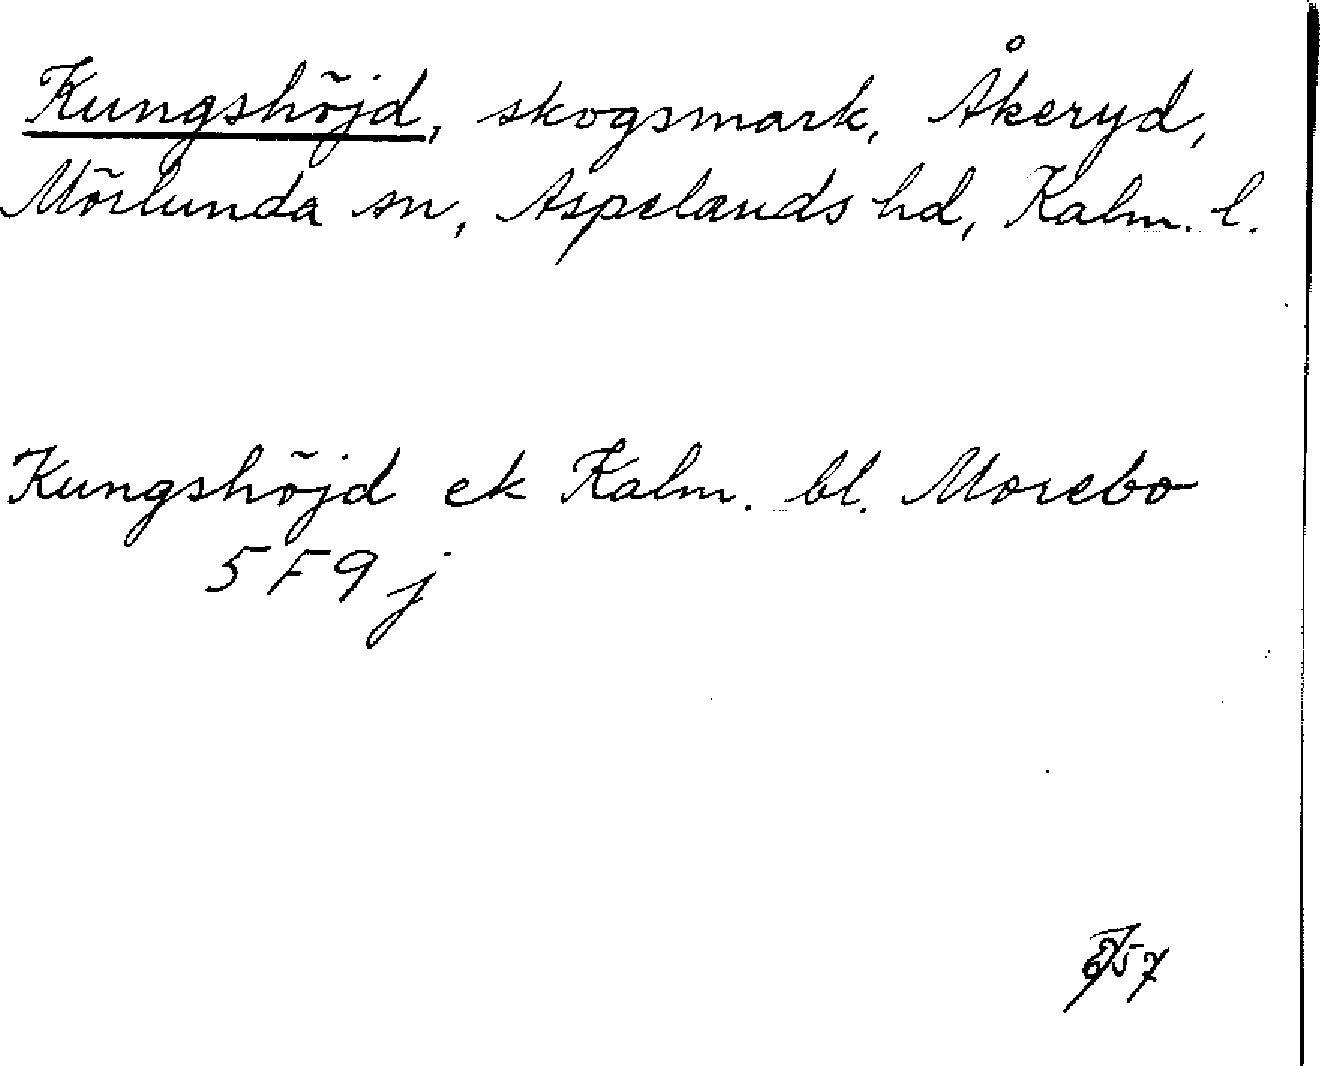 Kungshöjd, skogsmark, Åkeryd,
Mörlunda sn, Aspelands hd, Kalm. l.
Kungshöjd ek Kalm. bl. Morebo
5F9j